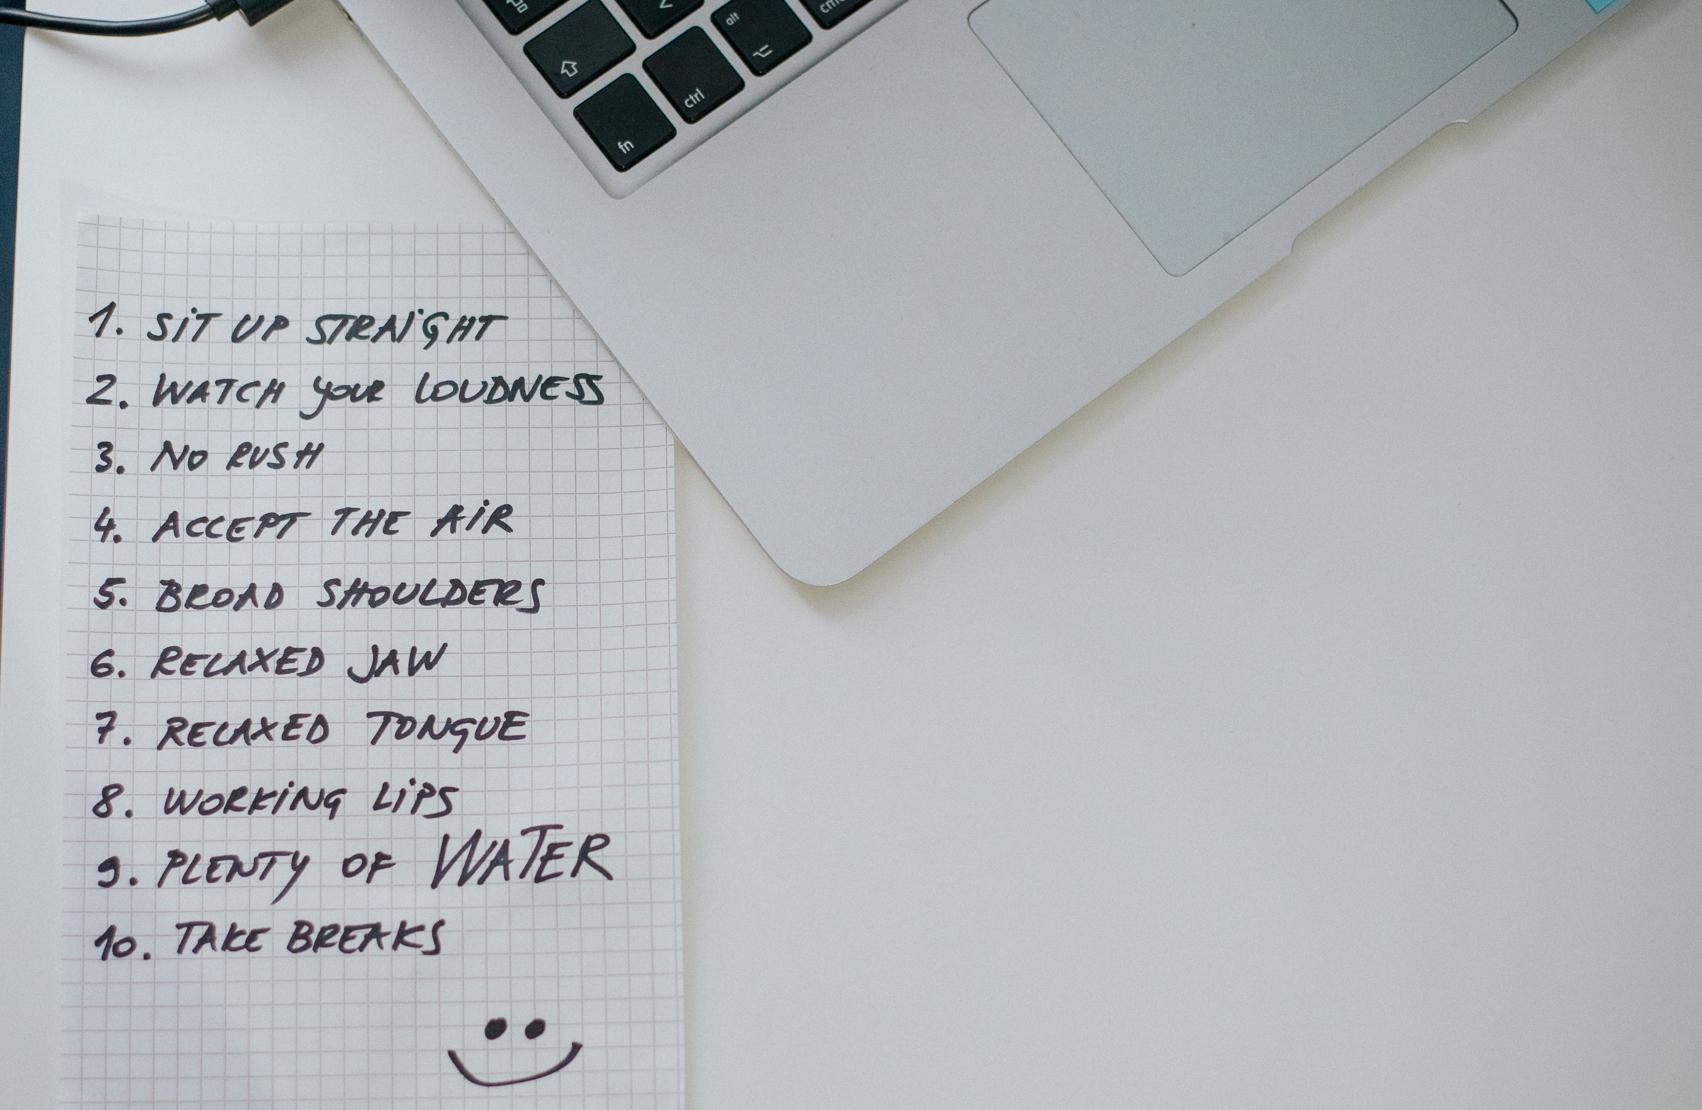 alt
cmd
ctrl
fn
1. SiT UP STRAiGHT
2. WATCH your LOUDNESS
3. NO RUSH
4. ACCEPT THE AiR
5. BROAD SHOULDERS
6. RELAXED JAW
7. RELAXED TONGUE
8. WORKiNG LiPS
9. PLENTY OF WATER
10. TAKE BREAKS